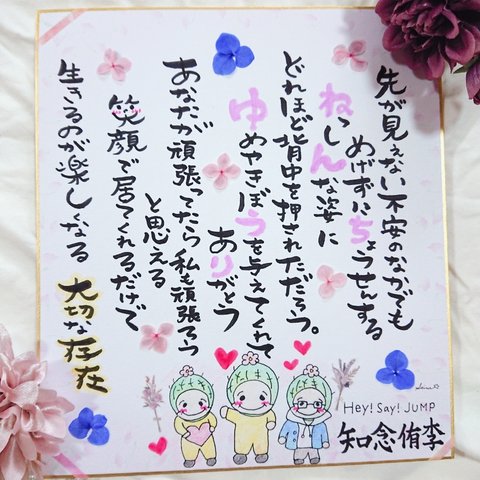 先が見えない不安のなかでも
めげずにちょうせんする
ねっしんな姿に
どれほど背中を押されただろう。
ゆめやきぼうを与えてくれて
ありがとう
あなたが頑張ってたら私も頑張ろう
と思える
笑顔で居てくれるだけで
生きるのが楽しくなる 大切な存在
Hey! Say! JUMP
知念侑李